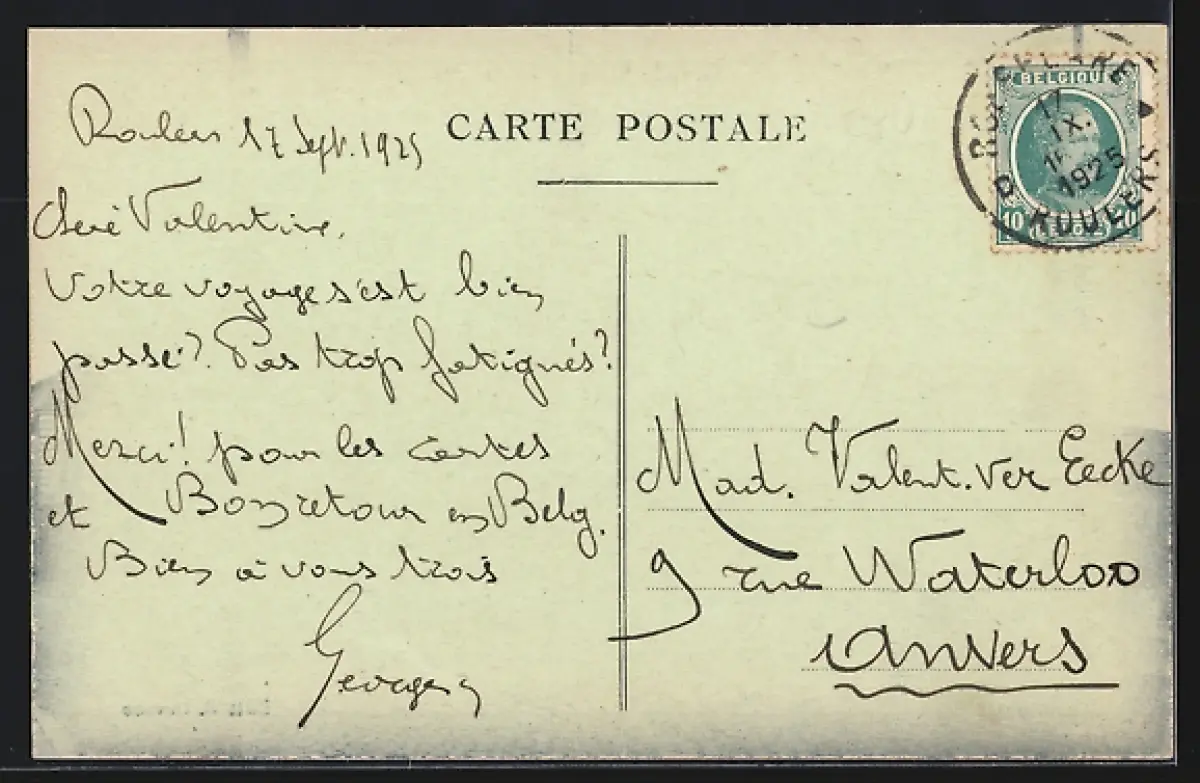 CARTE POSTALE
Roulers 17 Sept. 1925
Chère Valentine,
Votre voyage s'est bien
passé? Pas trop fatignés?
Merci! pour les cartes
et Bon retour en Belg.
Bien à vous trois
Georges
BELGIQUE
10 10
ROESELARE
17
IX.
1925
ROULERS
Mad. Valent. Ver Eecke
9 rue Waterloo
Anvers